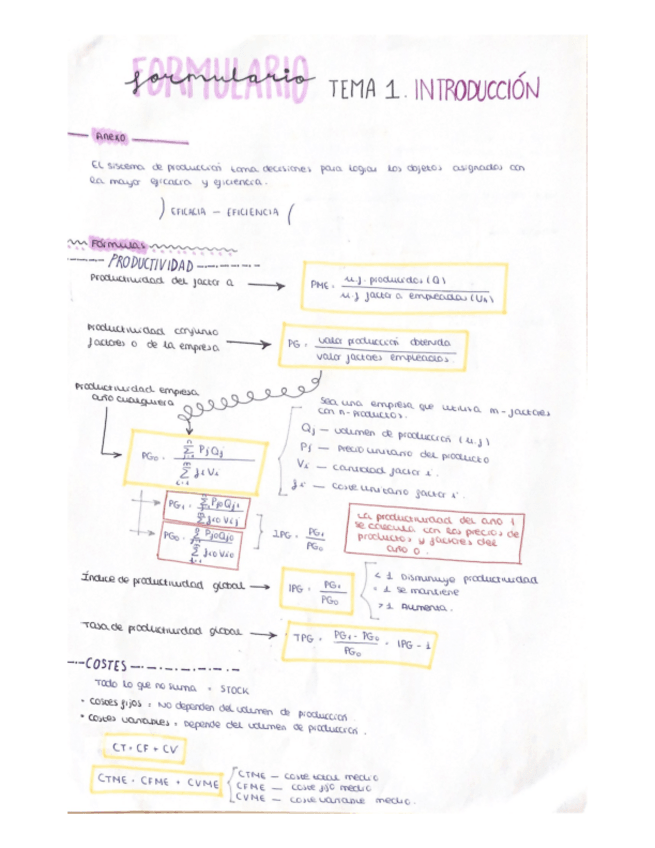 FORMULARIO
formulario TEMA 1. INTRODUCCIÓN
Anexo
El sistema de producción toma decisiones para lograr los objetos asignados con
la mayor eficacia y eficiencia.
) EFICACIA — EFICIENCIA (
Fórmulas
PRODUCTIVIDAD
Productividad del factor a → PME = u.f. producidas (Q) / u.f factor a empleadas (UA)
Productividad conjunto
factores o de la empresa → PG = valor producción obtenida / valor factores empleados.
Productividad empresa
año cualquiera
Sea una empresa que utiliza m-factores
con n-productos.
Qj — volumen de producción (u.f)
Pj — Precio unitario del producto
Vi — cantidad factor i.
fi — coste unitario factor i.
PG0 = n Σ j=1 PjQj / m Σ i=1 fiVi
PG1 = Σ Pj0Qj1 / Σ fi0 Vi1
PG0 = Σ Pj0Qj0 / Σ fi0 Vi0
IPG = PG1 / PG0
La productividad del año 1
se calcula con los precios de
productos y factores del
año 0.
Índice de productividad global → IPG = PG1 / PG0
< 1 Disminuye productividad
= 1 se mantiene
> 1 Aumenta.
Tasa de productividad global → TPG = PG1 - PG0 / PG0 = IPG - 1
COSTES
Todo lo que no suma = STOCK
• Costes fijos = No dependen del volumen de producción
• Costes variables = Depende del volumen de producción.
CT = CF + CV
CTME = CFME + CVME
CTME — coste total medio
CFME — coste fijo medio
CVME — coste variable medio.